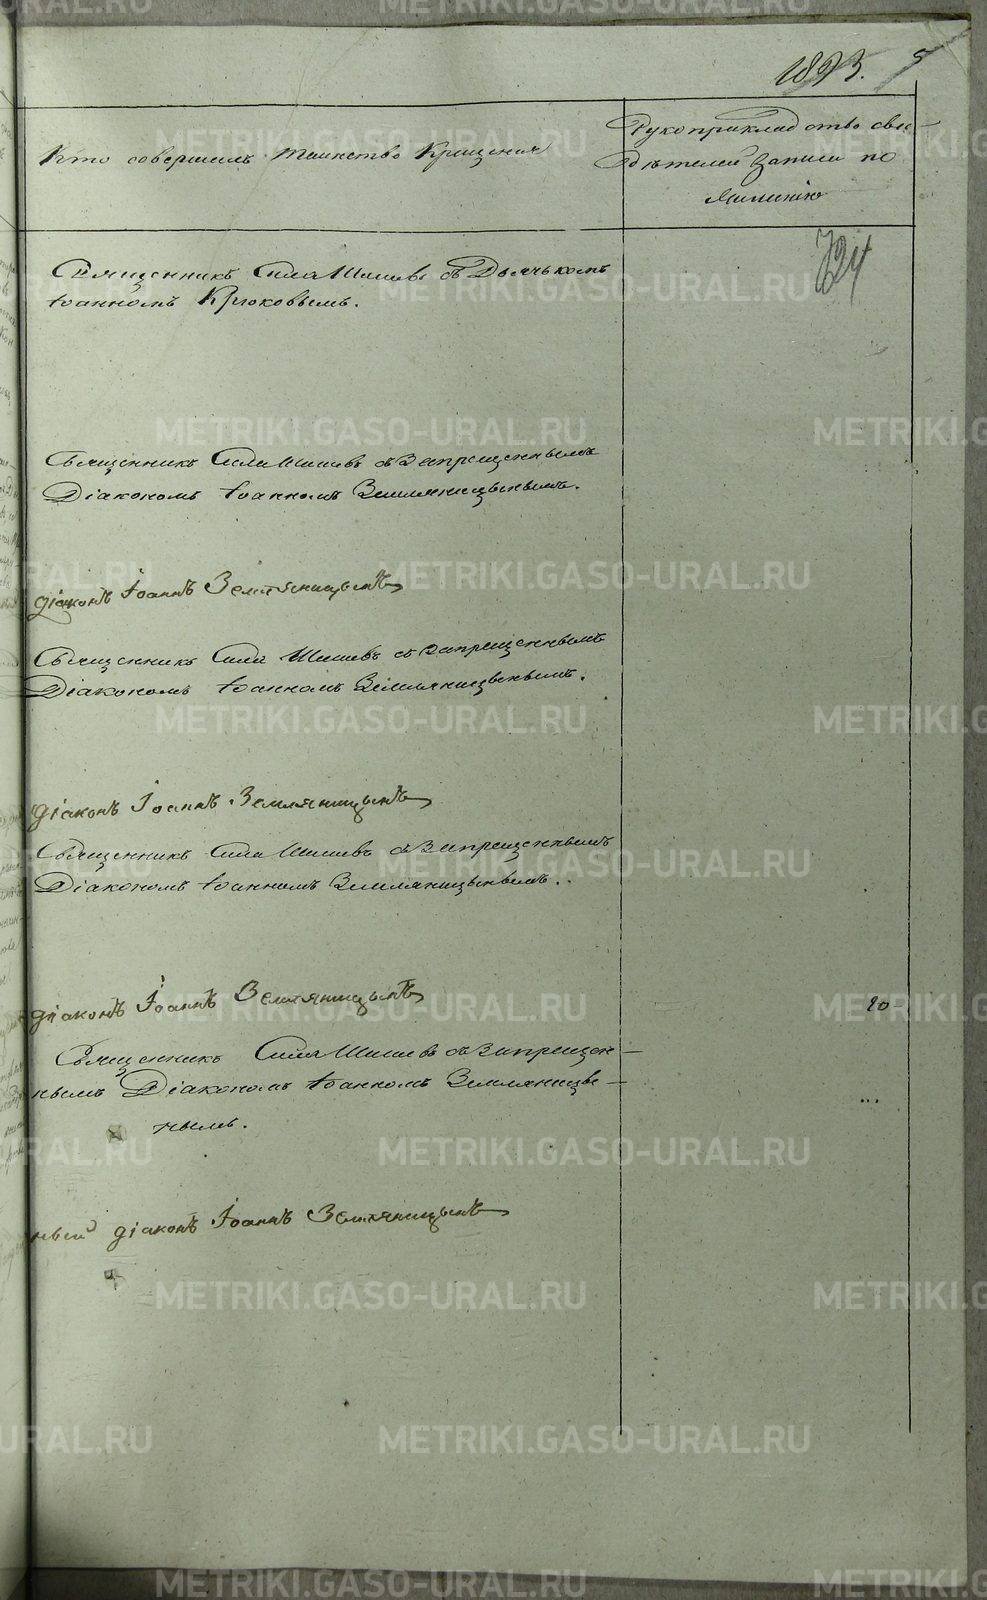 1893. 5
Кто совершилъ таинство Крещения
Рукоприкладство сви-
дѣтелей записи по
желанію
724
Священникъ Сила Шишевъ съ Дьячькомъ
Іоанномъ Крюковымъ.
Священникъ Сила Шишевъ съ Запрещеннымъ
Діакономъ Іоанномъ Земляницынымъ.
діаконъ Іоаннъ Земляницынъ
Священникъ Сила Шишевъ съ запрещеннымъ
Діакономъ Іоанномъ Земляницынымъ.
діаконъ Іоаннъ Земляницынъ
Священникъ Сила Шишевъ съ Запрещеннымъ
Діакономъ Іоанномъ Земляницынымъ.
діаконъ Іоаннъ Земляницынъ
20
Священникъ Сила Шишевъ съ запрещен-
нымъ Діакономъ Іоанномъ Земляницы-
нымъ.
ный діаконъ Іоаннъ Земляницынъ
METRIKI.GASO-URAL.RU